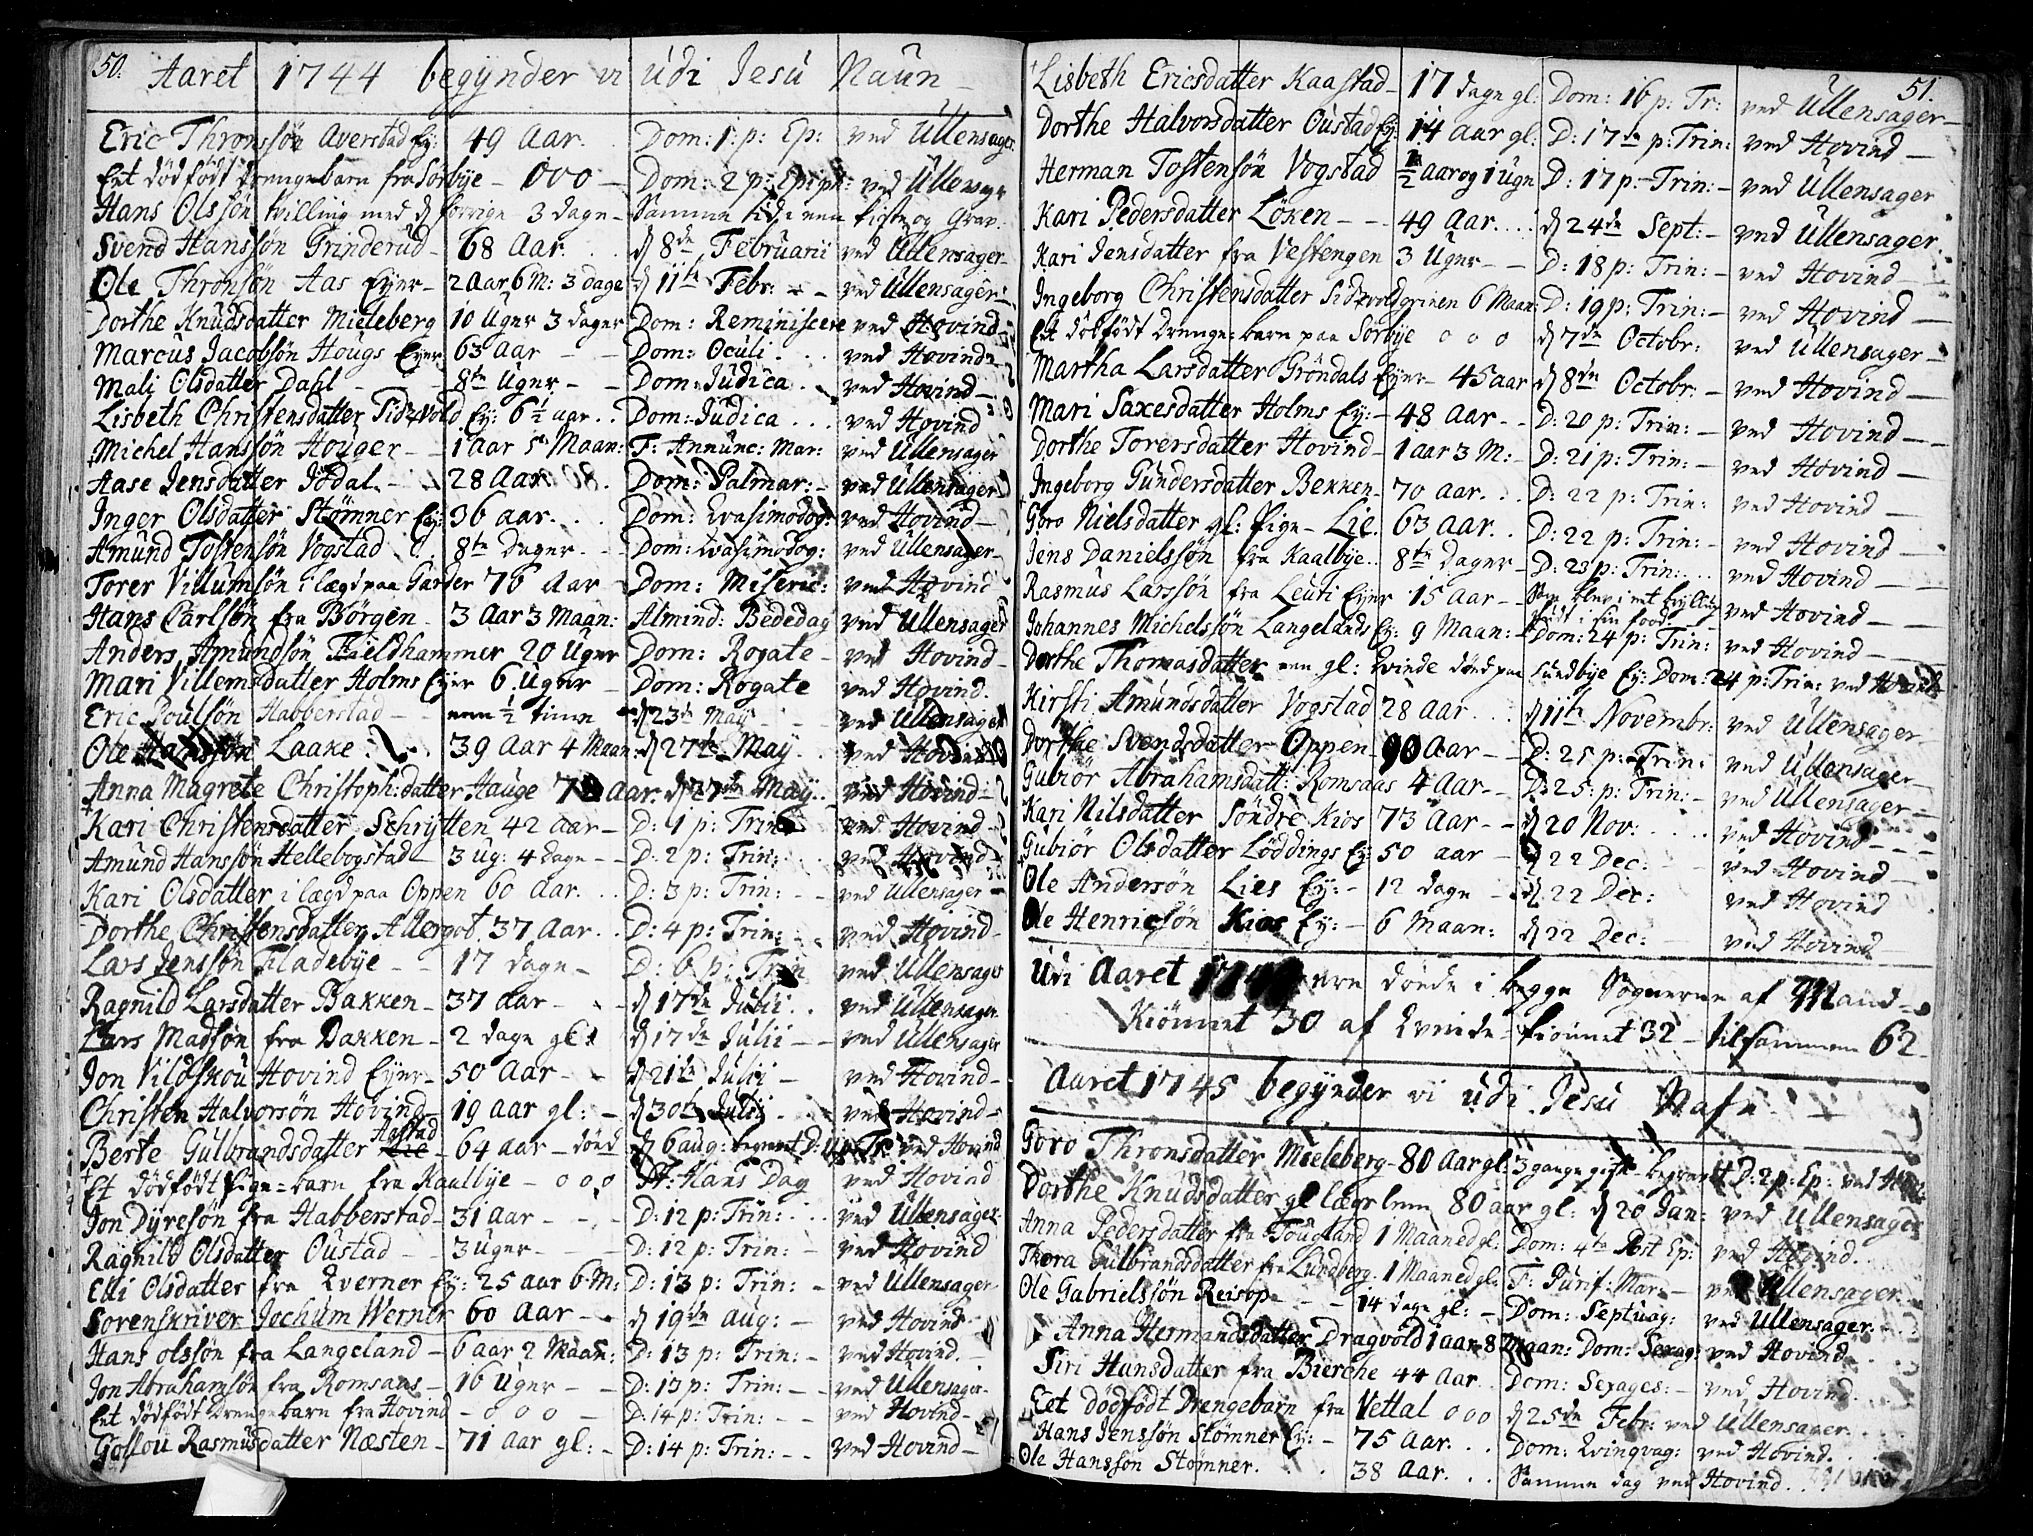 50.
Aaret 1744 begÿnder vi udi Jesu Naun
Eric Thronssön Averstad Eÿ: 49 Aar. Dom: 1. p: Ep: ved Ullensager
Eet dödfödt drengebarn fra Sörbÿe - 000 - Dom: 2 p: Epiph: ved Ullensager
Hans Olssön tvilling med d forrige 3 dage - Samme tid i een kiste og grav.
Svend Hanssön Grinderud - 68 Aar. d 8de Februarii ved Ullensager
Ole Thronsön Aas Eÿer - 2 Aar 6 M: 3 dage d 11te Febr: - - ved Ullensager
Dorthe Knudsdatter Mieleberg 10 Uger 3 dager Dom: Reminiscere ved Hovind
Marcus Jacobsön Hougs Eÿer 63 Aar - - Dom: Oculi . ved Hovind
Mali Olsdatter Dahl - - 8te Uger - - Dom: Judica . ved Hovind
Lisbeth Christensdatter Tidzvold Eÿ: 6½ aar . . Dom: Judica . . . ved Hovind
Michel Hanssön Houger - - 1 aar 5 Maan: F: Annunc: Mar: ved Ullensager
Aase Jensdatter Jödal - 28 Aar. Dom: Palmar: - ved Ullensager
Inger Olsdatter Stömner Eÿ: 36 aar. . . Dom: Qvasimodog: ved Hovind
Amund Tostensön Vogstad . 8te dager - - Dom: Qvasimodog: ved Ullensager
Torer Villumsön i lægd paa Garder 76 Aar - Dom: Miseric: ved Hovind
Hans Carlsön fra Börgen - 3 Aar 3 Maan: Almind: Bededag ved Ullensager
Anders Amundsön Fieldhammer 20 Uger Dom: Rogate - ved Hovind
Mari Villemsdatter Holms Eÿer 6 Uger - Dom: Rogate ved Hovind.
Eric Poulsön Habberstad - - een ½ time d 23de Maÿ ved Ullensager
Ole Hanssön Laake . . 39 Aar 4 Maan: d 27de Maÿ . ved Hovind
Anna Magrete Christoph:datter Hauge Aar. d 27de Maÿ . ved Hovind
Kari Christensdatter Schrÿtten 42 aar - D: 1 p: Trin: ved Hovind
Amund Hanssön Hellebogstad - 3 ug: 4 dage - - D: 2 p: Trin: ved Hovind
Kari Olsdatter i lægd paa Oppen 60 Aar. . . D: 3 p: Trin: - ved Ullensager
Dorthe Christensdatter Allergot 37 Aar . . D: 4 p: Trin: ved Hovind
Lars Jenssön Fladebÿe - - 17 dage - D: 6 p: Trin ved Ullensager
Ragnild Larsdatter Bakken - 37 aar - - d 17de Julii . ved Ullensager
Lars Madsön fra Bakken - 2 dage gl: d 17de Julii - - ved Ullensager
Jon Vildskou Hovind Eÿer - 50 Aar - - d 21de Julii - ved Hovind
Christen Halvorsön Hovind - 19 aar gl: - d 30te Julii . ved Hovind
Berte Gulbrandsdatter Aastad 64 aar - död d 6 aug: begravet D: ved Hovind
Et dödfödt Pige-barn fra Kaalbÿe - 000 St: Hans Dag ved Hovind
Jon Dÿresön fra Habberstad - 31 aar - - D: 12 p: Trin: . ved Ullensager
Ragnild Olsdatter Oustad - - 3 uger - D: 12 p: Trin: - ved Hovind
Elli Olsdatter fra Qverner Eÿ: 25 aar 6 M: D: 13 p: Trin: - ved Ullensager
Sorenskriver Jochum Werner 60 Aar - . d 19de aug: - ved Hovind
Hans olssön fra Langeland - 6 aar 2 Maan: D: 13 p: Trin: - ved Hovind
Jon Abrahamsön fra Romsaas - 16 Uger - - D: 13 p: Trin: - - ved Ullensager
Eet dödfödt drengebarn fra Hovind - 000 - D: 14 p: Trin: - - ved Hovind
Gollou Rasmusdatter Næsten - 71 Aar gl: - D: 14 p: Trin: - ved Hovind
51.
Lisbeth Ericsdatter Kaastad - 17 dage gl: Dom: 16 p: Tr: ved Ullensager
Dorthe Halvorsdatter Oustad Eÿ: 14 Aar gl: D: 17de p: Trin: ved Hovind
Herman Tostensön Vogstad ½ aar og 1 uge D: 17 p: Trin: - ved Ullensager
Kari Pedersdatter Löken - - 49 Aar. . . d 24de Sept: - ved Ullensager
Kari Jensdatter fra Vestengen 3 Uger - - D: 18 p: Trin: - ved Hovind
Ingeborg Christensdatter Tidzvoldgrinen 6 Maan: D: 19 p: Trin: - ved Hovind
Et dödfödt drenge-barn paa Sörbÿe 000 d 7de Octobr: ved Ullensager
Martha Larsdatter Gröndals Eÿer - 45 aar d 8de Octobr. - ved Hovind
Mari Saxesdatter Holms Eÿ: - 48 Aar - . D: 20 p: Trin: - ved Hovind
Dorthe Torersdatter Hovind - 1 aar 3 M: - D: 21 p: Trin: - ved Hovind
Ingeborg Gundersdatter Bekken - 70 Aar. . . D: 22 p: Trin: ved Hovind
Goro Nielsdatter gl: Pige - Lie. 63 Aar. . D: 22 p: Trin: - ved Hovind
Jens Danielssön fra Kaalbÿe . . 8te dager - D: 23 p: Trin: . . . ved Hovind
Rasmus Larssön fra Leuti Eÿer 15 Aar - - ved Hovind
Johannes Michelssön Langelands Eÿ: 9 Maan: - Dom: 24 p: Trin: ved Hovind
Dorthe Thomasdatter een gl: Qvinde död paa Sundbÿe Eÿ: Dom: 24 p: Trin: ved Hovind
Kirsti Amundsdatter Vogstad 28 Aar . . . d 11te Novembr: ved Ullensager
Dorthe Svendsdatter Oppen 90 Aar - - D: 25 p: Trin: ved Ullensager
Gubiör Abrahamsdatt: Romsaas 4 Aar - - D: 25: p: Trin: - ved Ullensager
Kari Nilsdatter Söndre Kios 73 Aar - - d 20 Nov: . . ved Hovind
Gubiör Olsdatter Löddings Eÿ: 50 aar - d 22 Dec: ved Hovind
Ole Andersön Lies Eÿ: - 12 dage - d 22 Dec: ved Hovind
Ole Henricsön Kios Eÿ: - 6 Maan: d 22 Dec: - ved Hovind
Udi Aaret 1744 ere döde i begge Sognerne af Mand-
Kiönnet 30 af Qvinde-kiönnet 32 - tilsammen 62
Aaret 1745 begÿnder vi udi Jesu Nafn
Goro Thronsdatter Mieleberg - 80 Aar gl: 3 gange gift - begravet D: 2 p: Ep: ved Hov:
Dorthe Knudsdatter gl lægslem 80 aar gl: d 20 Jan: ved Ullensager
Anna Pedersdatter fra Fougland 1 Maaned gl: Dom: 4te Post Ep: ved Hovind.
Thora Gulbrandsdatter fra Lundberg. 1 Maaned gl: F: Purif: Mar: - ved Ullensager
Ole Gabrielssön Reisop - - 14 dage gl: - Dom: Septuag: ved Ullensager
Anna Hermandsdatter Dragvold 1 aar 8 Maan: Dom: Sexag: ved Hovind
Siri Hansdatter fra Bierche 44 Aar. . Dom: Sexages: - ved Hovind.
Eet dödfödt Drengebarn fra Vettal 000 d 25de Febr: ved Ullensager.
Hans Jenssön Stömner Eÿ: - 75 Aar. . . Dom: Qvinqvag: ved Hovind.
Ole Hanssön Stömner. . 38 Aar. . . Samme dag ved Hovind . .